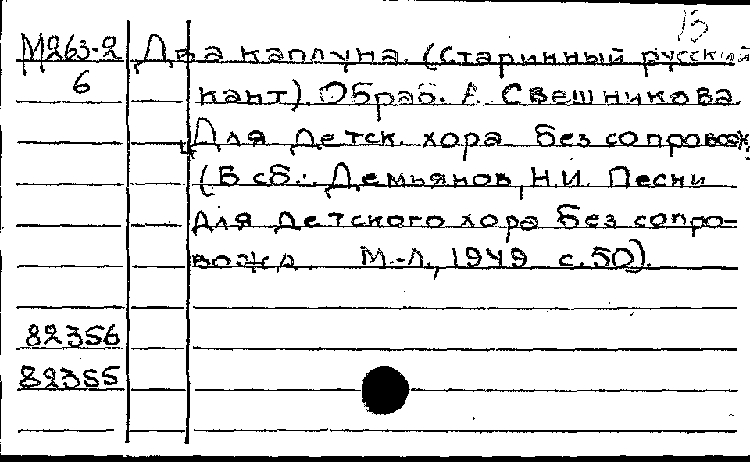 15
М263-2 Два каплуна. (Старинный русский
6 кант). Обраб. А. Свешникова.
Для детск. хора без сопровож
(В сб.: Демьянов, Н.И. Песни
для детского хора без сопро-
вожд. М.-Л., 1949 с.50).
82356
82355